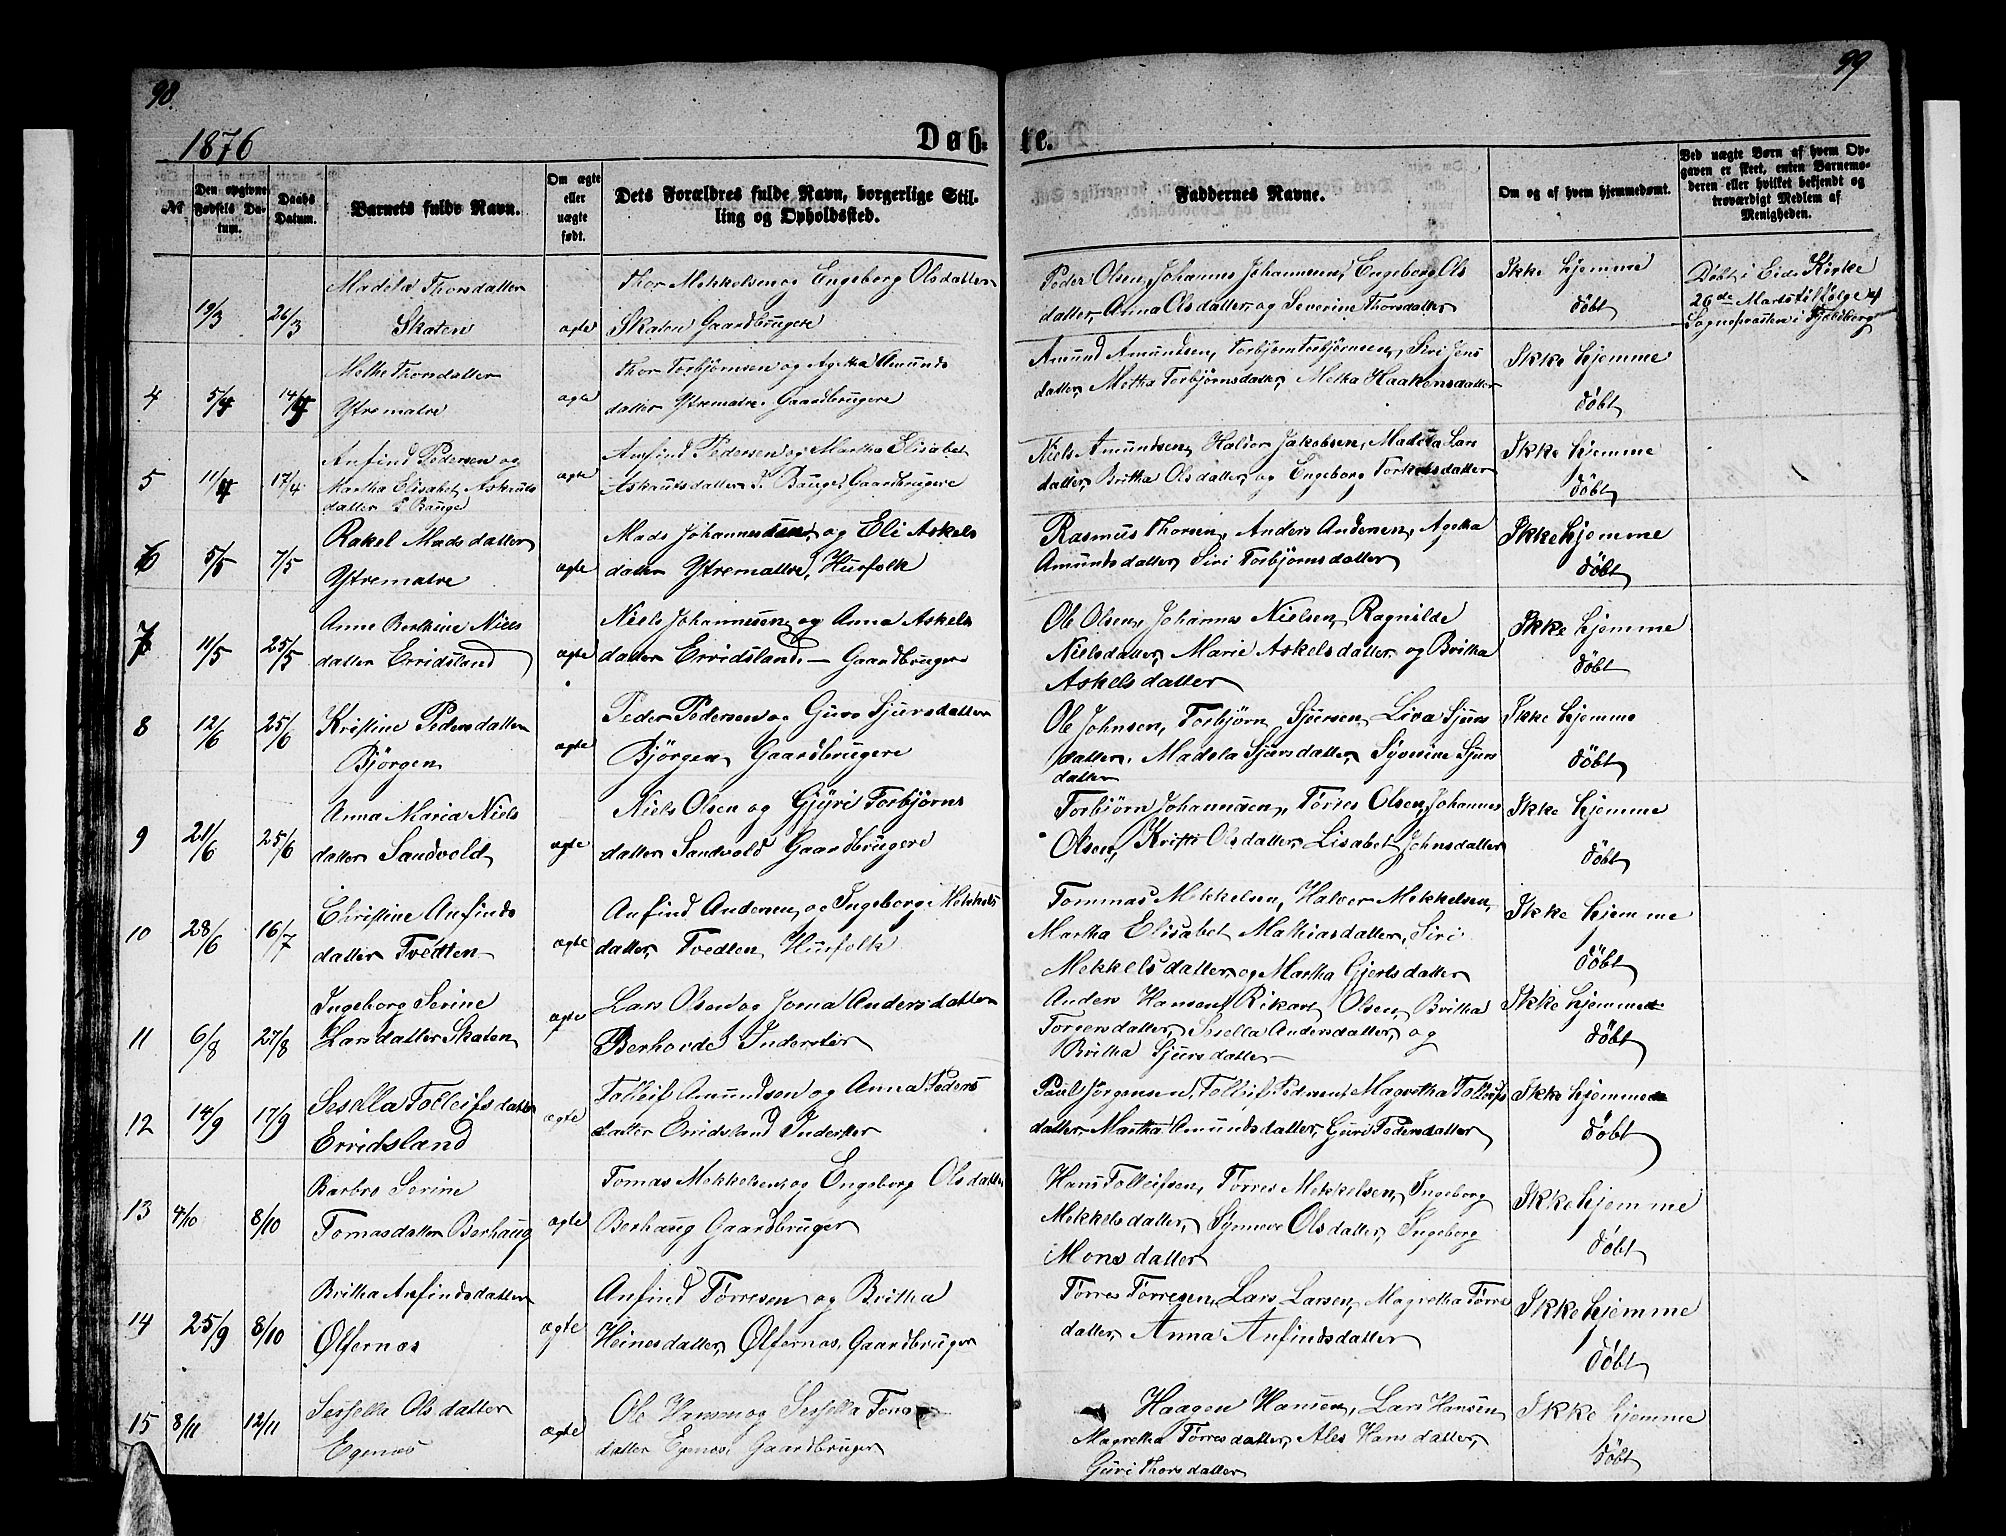 98
99
1876
Døb-
te.
№
Den opgivne Fødsels Datum.
Daabs Datum.
Barnets fulde Navn.
Om ægte eller uægte født.
Dets Forældres fulde Navn, borgerlige Stilling og Opholdssted.
Faddernes Navne.
Om og af hvem hjemmedøbt.
Ved uægte Børn af hvem Opgaven er skeet, enten Barnemoderen eller hvilket bekjendt og troværdigt Medlem af Menigheden.
19/3 26/3
Madela Thorsdatter
Skaten
ægte
Thor Mekkelsen og Engeborg Olsdatter
Skaten Gaardbrugere
Peder Olsen, Johannes Johannesen, Engeborg Ols
datter, Anna Olsdatter, og Severine Thorsdatter
Ikke hjemme
døbt
Døbt i Eids Kirke
26de Marts tilfølge af
Sognepræsten i Fjeldberg
4 5/4 14/4
Methe Thorsdatter
Ytrematre
ægte
Thor Torbjørnsen og Agetha Amunds
datter Ytrematre. Gaardbrugere
Amund Amundsen, Torbjørn Torbjørnsen, Siri Jens
datter, Metha Torbjørnsdatter, Metha Haakensdatter
Ikke hjemme
døbt
5 11/4 17/4
Anfind Pedersen og
Martha Elisabet Askouts
datter Bauge
ægte
Anfind Pedersen og Martha Elisabet
Askoutsdatter Bauge, Gaardbrugere
Niels Amundsen, Haldor Jakobsen, Madela Lars
datter, Britha Olsdatter, og Engeborg Torkelsdatter
Ikke hjemme
døbt
6 5/5 7/5
Rakel Madsdatter
Ytrematre
ægte
Mads Johannesden, og Eli Askels
datter Ytremattre, Husfolk
Rasmus Thorsen, Anders Andersen, Agetha
Amundsdatter, Siri Torbjørnsdatter
Ikke hjemme
døbt
7 11/5 25/5
Anne Berthine Niels
datter Erridsland
ægte
Niels Johannesen og Anna Askels
datter Erridsland, — Gaardbrugere
Ole Olsen, Johannes Nielsen, Ragnilde
Nielsdatter, Marie Askelsdatter og Britha
Askelsdatter
Ikke hjemme
døbt
8 12/6 25/6
Kristine Pedersdatter
Bjørgen
ægte
Peder Pedersen og Guro Sjursdatter
Bjørgen Gaardbrugere
Ole Johnsen, Torbjørn Sjursen, Liva Sjurs
datter, Madela Sjursdatter, Synnine Sjurs
datter
Ikke hjemme
døbt
9 21/6 25/6
Anna Maria Niels
datter Sandvold
ægte
Niels Olsen og Gjyri Torbjørns
datter Sandvold Gaardbrugere
Torbjørn Johannesen, Tørres Olsen, Johannes
Olsen, Kristi Olsdatter, Lisabet Johnsdatter
Ikke hjemme
døbt
10 28/6 16/7
Christine Anfinds
datter Tvedten
ægte
Anfind Andersen og Ingeborg Mekkels
datter, Tvedten Husfolk
Tommas Mekkelsen, Halver Mekkelsen,
Martha Elisabet Mathiasdatter, Siri
Mekkelsdatter og Martha Gjertsdatter
Ikke hjemme
døbt
11 6/8 27/8
Ingeborg Serine
Larsdatter Skaten
ægte
Lars Olsen og Joma Andersdatter
Berhovde Inderster
Anders Hansen, Rikart Olsen, Britha
Torgersdatter, Sesella Andersdatter, og
Britha Sjursdatter
Ikke hjemme
døbt
12 14/9 17/9
Sesella Tolleifsdatter
Erridsland
ægte
Tolleif Amundsen og Anna Peders
datter Erridsland Inderster
Paul Jørgensen, Tolleif Pedersen, Magretha Tolleifs
datter, Martha Amundsdatter, Guri Pedersdatter
Ikke hjemme
døbt
13 4/10 8/10
Barbro Serine
Tomasdatter Berhaug
ægte
Tomas Mekkelsen og Engeborg Olsdatter
Berhaug Gaardbruger
Hans Tolleifsen, Tørres Mekkelsen, Ingeborg
Mekkelsdatter, Synneve Olsdatter, Ingeborg
Monsdatter
Ikke hjemme
døbt
14 25/9 8/10
Britha Anfindsdatter
Ølfernæs
ægte
Anfind Tørresen og Britha
Heinesdatter, Ølfernæs, Gaardbruger
Tørres Tørresen, Lars Larsen, Magretha Tørres
datter, Anna Anfindsdatter
Ikke hjemme
døbt
15 8/11 12/11
Sessella Olsdatter
Egenæs
ægte
Ole Hansen og Sessella
datter Egenæs, Gaardbruger
Haagen Hansen, Lars Hansen
Magretha Tørresdatter, Ales Hansdatter,
Guri Thorsdatter
Ikke hjemme
døbt